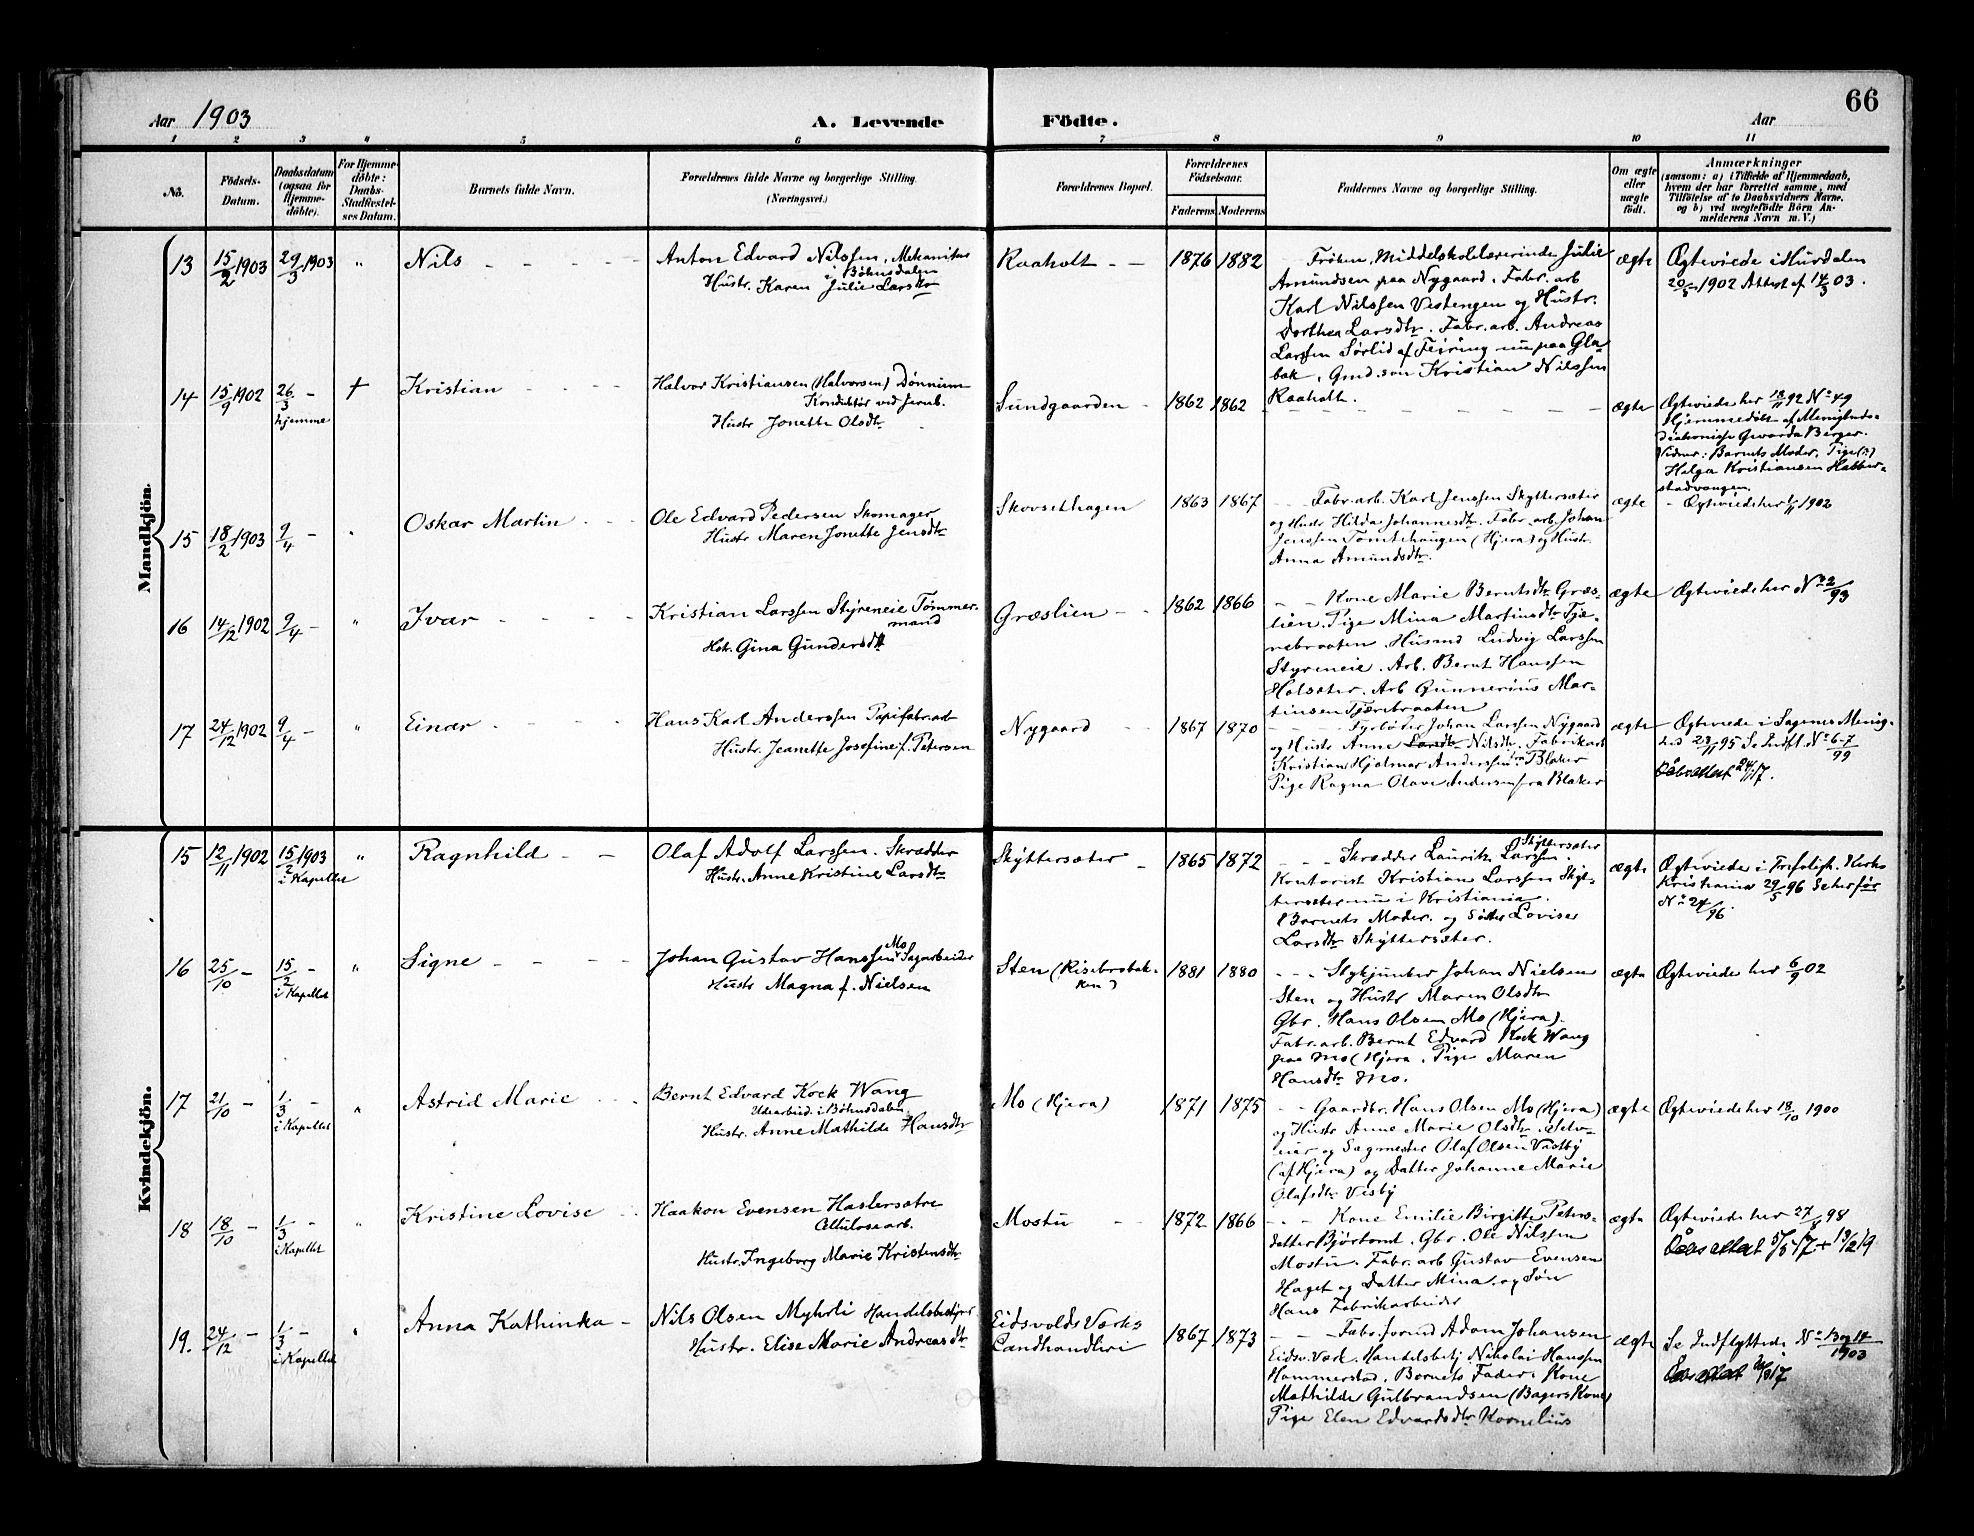 66
Aar 1903
A. Levende Fødte.
Aar
1 2 3 4 5 6 7 8 9 10 11
No.
Fødsels-Datum.
Daabsdatum (ogsaa for Hjemme-døbte).
For Hjemme-døbte: Daabs-Stadfæstel-ses Datum.
Barnets fulde Navn.
Forældrenes fulde Navne og borgerlige Stilling. (Næringsvei.)
Forældrenes Bopæl.
Forældrenes Fødselsaar.
Faderens Moderens
Faddernes Navne og borgerlige Stilling.
Om ægte eller uægte født.
Anmærkninger
(saasom: a) i Tilfælde af Hjemmedaab,
hvem der har forrettet samme, med
Tilføielse af to Daabsvidners Navne.
og b) ved uægtefødte Børn An-
melderens Navn m. V.)
Mandkjön.
13 15/2 1903 29/3 1903 " Nils
Anton Edvard Nilssen, Mekanikus
i Bøhnsdalen
Hustr. Karen Julie Larsdtr
Raaholt 1876 1882
Frøken, Middelskolelærerinde Julie
Amundsen paa Nygaard. Fabr. arb
Karl Nilssen Vestengen og Hustr.
Dorthea Larsdtr. Fabr. arb. Andreas
Larssen Sørlid af Feiring nu paa Gla-
bak, Gmd. søn Kristian Nilssen
Raaholt.
ægte
Ægteviede i Hurdalen
1902 Attest af 14/3 03.
14 15/9 1902 26/3 hjemme † Kristian
Halvor Kristiansen (Halvorsen) Dønnum
Konduktør ved Jernb.
Hustr Jonette Olsdtr
Sundgaarden 1862 1862
ægte
Ægteviede her 18/11 92 No 49
Hjemmedøbt af Menigheds-
diakonisse Gwarda Berger.
Vidner: Barnets Moder, Pige
Helga Kristiansen Habber-
stadvangen.
15 18/2 1903 9/4 " Oskar Martin
Ole Edvard Pedersen Skomager
Hustr Maren Jonette Jensdtr
Skovsethagen 1863 1867
Fabr. arb. Karl Jenssen Skyttersæter
og Hustr Hilda Johannesdtr. Fabr. arb. Johan
Jenssen Tomtehaugen (Hjera) og Hustr.
Anna Amundsdtr.
ægte
Ægteviede her 1902
16 14/12 1902 9/4 " Ivar
Kristian Larssen Styreneie Tømmer-
mand
Hstr. Gina Gundersdtr
Græslien 1862 1866
Kone Marie Berntsdtr Græs-
lien. Pige Mina Martinsdtr Tjæ-
rebraaten. Husmd Ludvig Larssen
Styreneie. Arb. Bernt Hanssen
Holsæter. Arb Gunnerius Mar-
tinsen Tjærebraaten
ægte
Ægteviede her No 2/93
17 24/12 1902 9/4 " Einar
Hans Karl Anderssen Papirfabr.arb
Hustr. Jeanette Josefine f. Petersen
Nygaard 1867 1870
Fyrbøder Johan Larssen Nygaard
og Hustr Anne Larsdtr Nilsdtr. Fabrikarb
Kristian Hjalmar Anderssen fra Blaker
Pige Ragna Olave Andersen fra Blaker
ægte
Ægteviede i Sagenes Menig-
hed 23/11 95 Se Indfl. No 6-7/99
Døbeattest 24/11 17.
Kvindekjön.
15 12/11 1902 15/2 1903 i Kapellet " Ragnhild
Olaf Adolf Larssen. Skrædder
Hustr. Anne Kristine Larsdtr
Skyttersæter 1865 1872
Skrædder Laurits Larssen Skyttersæter.
Kontorist Kristian Larssen Skyt-
tersæter nu i Kristiania.
Barnets Moder. og Søster Lovise
Larsdtr Skyttersæter.
ægte
Ægteviede i Trefoligh. Kirke
Kristiania 29/5 96 Se herfør
No 24/96.
16 25/10 15/2 i Kapellet " Signe
Johan Gustav Hanssen Mo Sagarbeider
Hustr Magna f. Nielsen
Sten (Risebrobak-
ken) 1881 1880
Stykjunker Johan Nielsen
Sten og Hustr Maren Olsdtr
Gbr. Hans Olsen Mo (Hjera).
Fabr. arb. Bernt Edvard Kock Wang
paa Mo (Hjera. Pige Maren
Hansdtr Mo.
ægte
Ægteviede her 6/9 02
17 21/10 1/3 i Kapellet " Astrid Marie
Bernt Edvard Kock Wang
Udearbeid. i Bøhnsdalen
Hustr. Anne Mathilde Hansdtr
Mo (Hjera) 1871 1875
Gaardbr. Hans Olsen Mo (Hjera)
og Hustr Anne Marie Olsdtr. Selv-
eier og Sagmester Olaf Olsen Vestby
(af Hjera) og Datter Johanne Marie
Olafsdtr Vesby
ægte
Ægteviede her 18/10 1900
18 18/10 1/3 i Kapellet " Kristine Lovise
Haakon Evensen Haslersætre
Cellulosearb.
Hustr. Ingeborg Marie Kristensdtr
Mostu 1872 1866
Kone Emilie Birgitte Peters-
datter Bjørtomt. Gbr. Ole Nilssen
Mostu. Fabr. arb Gustav Evensen
Haget og Datter Mina og Søn
Hans Fabrikarbeider
ægte
Ægteviede her 27/8 98
19. 24/12 1/3 i Kapellet " Anna Kathinka
Nils Olsen Myhrli Handelsbestyrer
Hustr. Elise Marie Andreasdtr
Eidsvolds Værks
Landhandleri 1867 1873
Fabr. formd Adam Johansen
Eidsv. Værk. Handelsbetj Nikolai Hanssen
Hammerstad. Barnets Fader. Kone
Mathilde Gulbrandsen (Bagers Kone)
Pige Elen Edvardsdtr Kornelius
ægte
Se Indflyttede No 13 og 14/1903